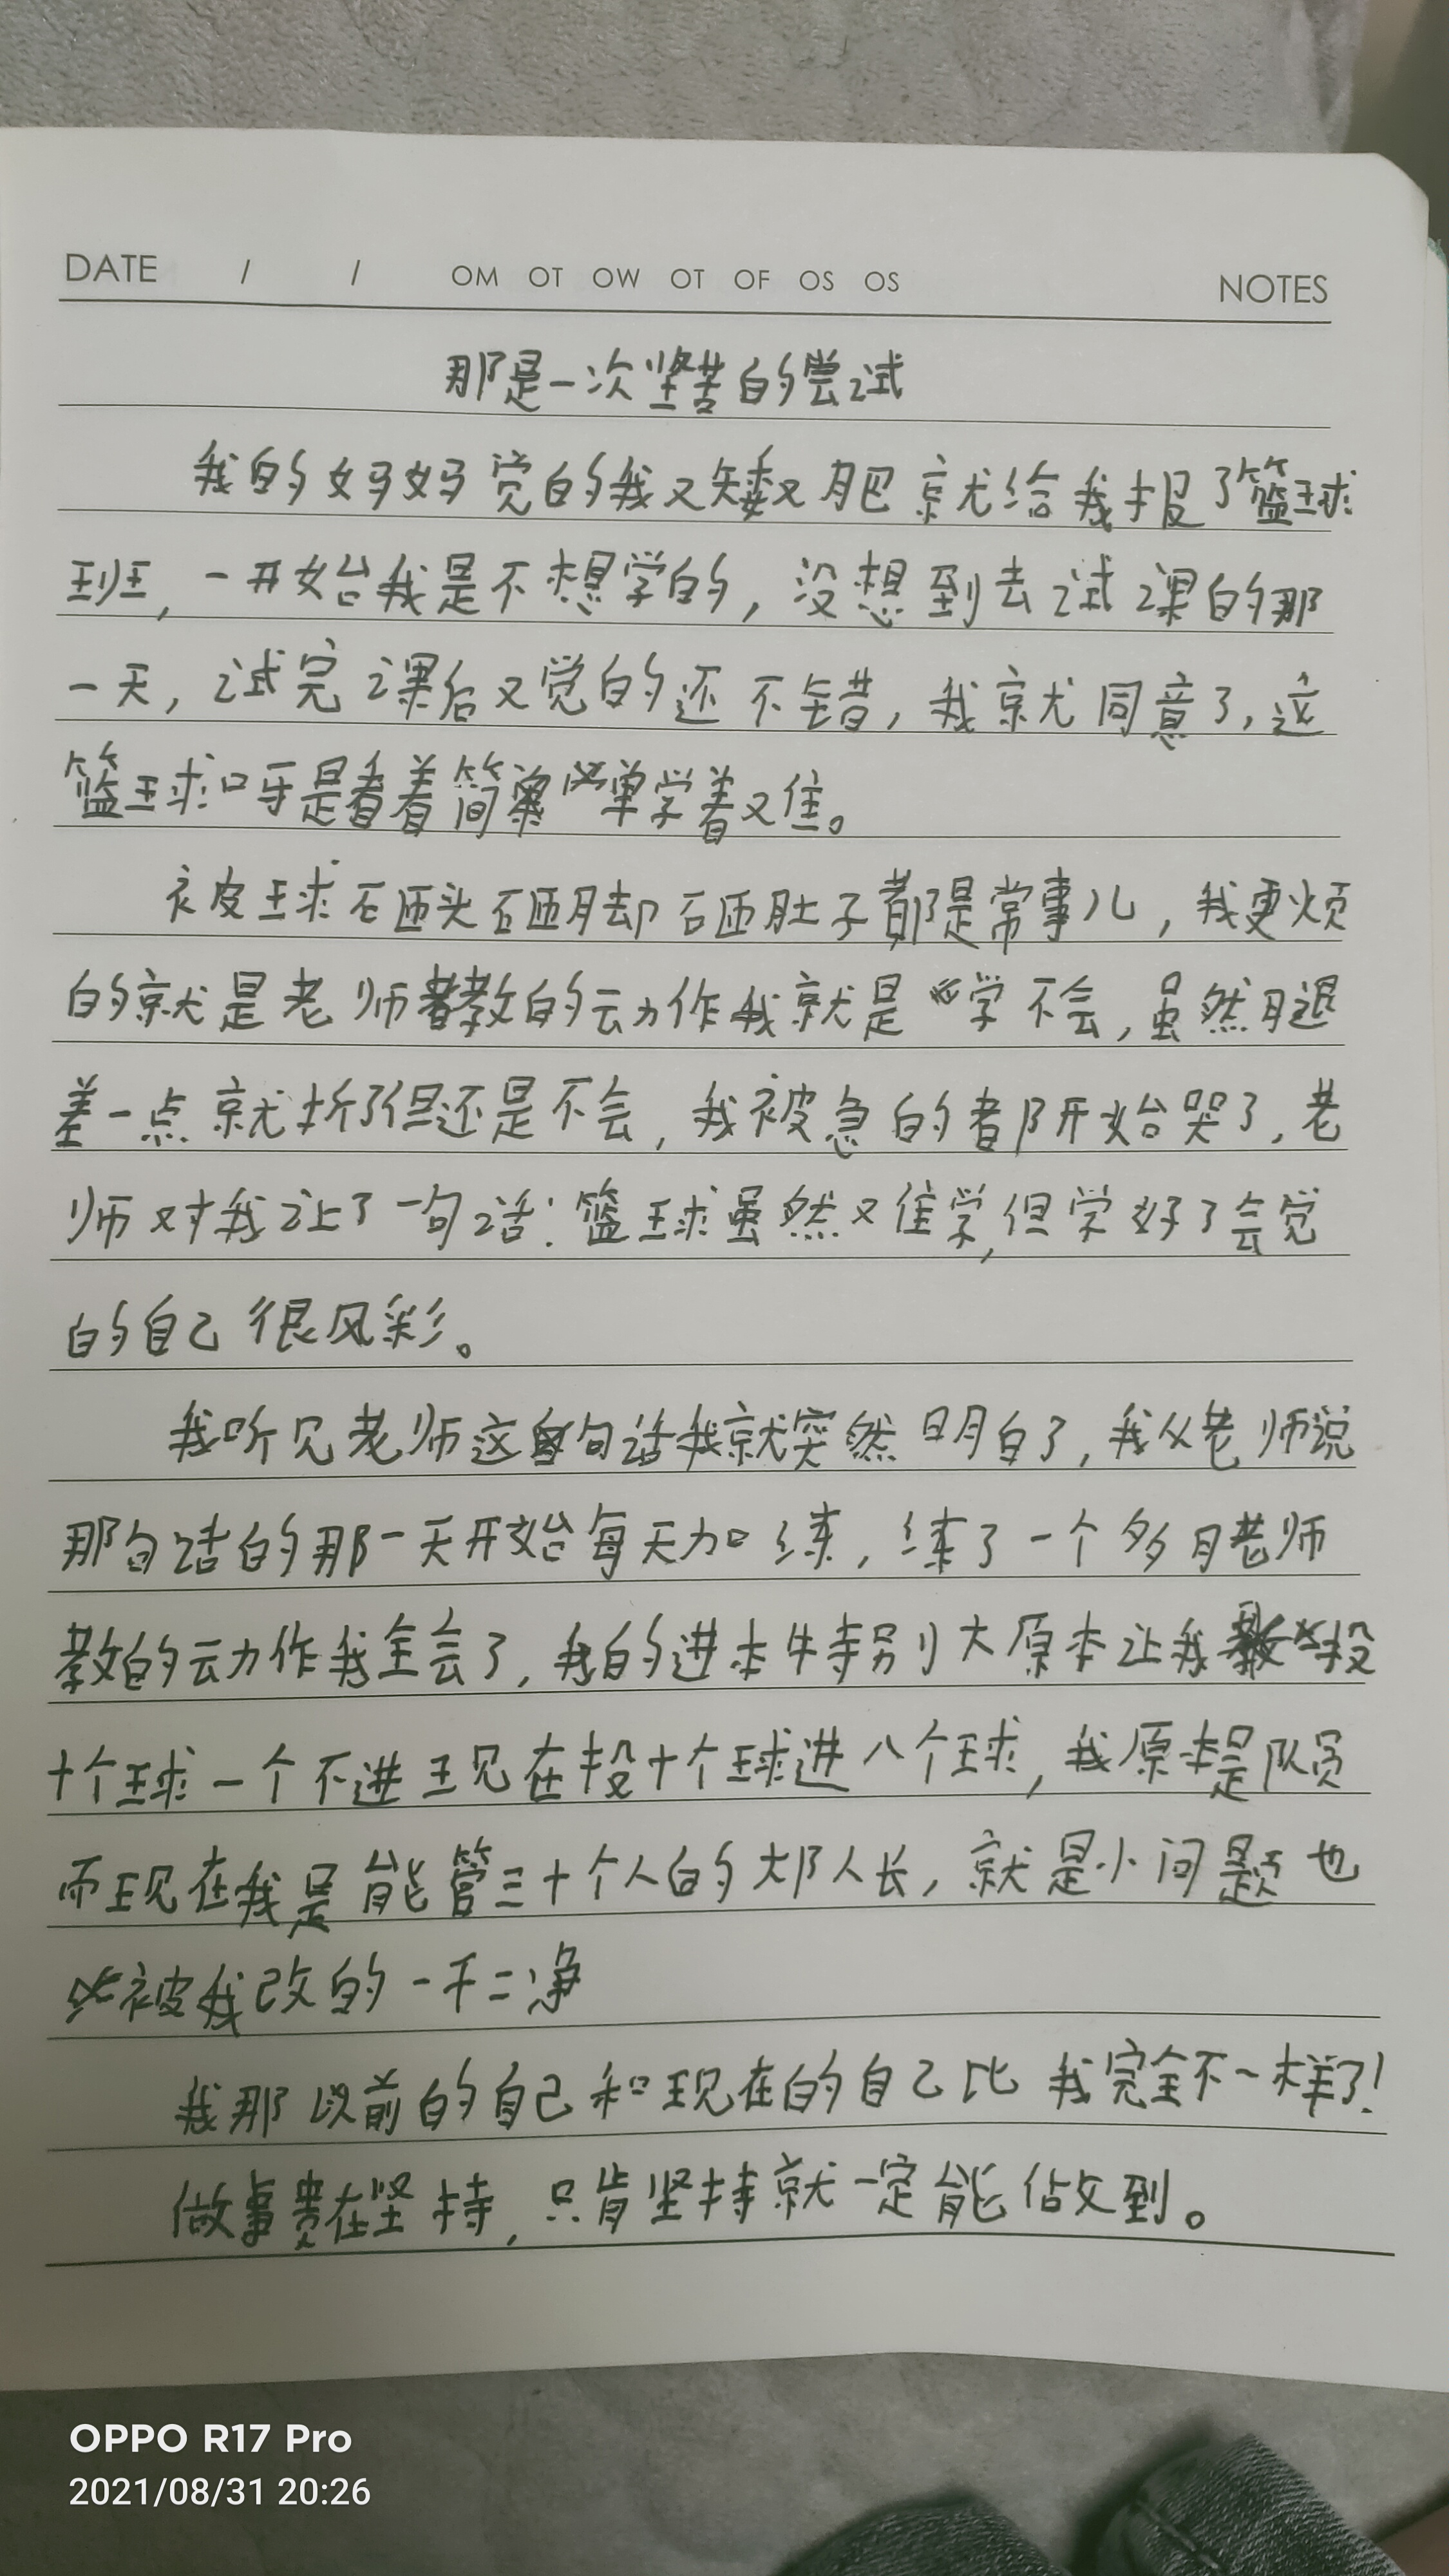 DATE / / OM OT OW OT OF OS OS NOTES
那是一次坚苦的尝试
我的妈妈觉的我又矮又肥就给我报了篮球
班,一开始我是不想学的,没想到去试课的那
一天,试完课后又觉的还不错,我就同意了,这
篮球呀是看着简单学着难。
被球砸头砸脚砸肚子都是常事儿,我更烦
的就是老师教的动作我就是学不会,虽然腿
差一点就折了但还是不会,我被急的都开始哭了,老
师对我让了一句话:篮球虽然难学,但学好了会觉
的自己很风彩。
我听见老师这句话我就突然明白了,我从老师说
那句话的那一天开始每天加练,练了一个多月老师
教的动作我全会了,我的进本特别大原本让我投
十个球一个不进现在投十个球进八个球,我原本是队员
而现在我是能管三十个人的大队人长,就是小问题也
被我改的一干二净
我那以前的自己和现在的自己比我完全不一样了!
做事贵在坚持,只肯坚持就一定能做到。
OPPO R17 Pro
2021/08/31 20:26